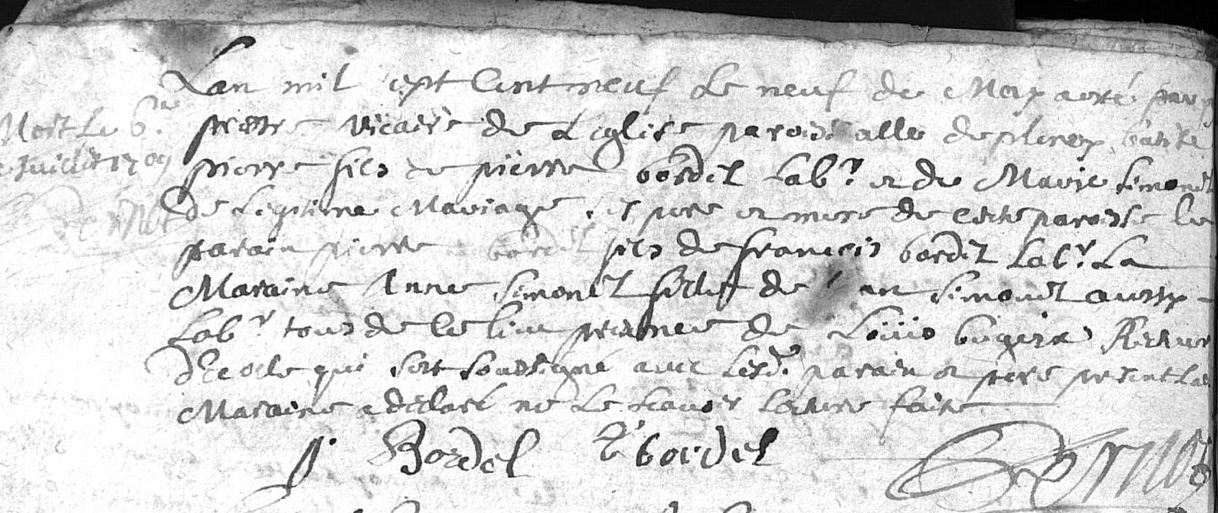 Lan mil sept Cent neuf Le neuf de May a esté par
Mort Le 6.me
prestre vicaire de Leglise paroissialle de baptisé
Juillet 1709
pierre fils de pierre bordel Lab.r et de Marie Simonet
de Legitime Mariage, ses pere et mere de cette paroisse le
parain pierre bordel fils de francois bordel Lab.r La
Maraine Anne Simonet fille de Jean Simonet aussy
Lab.r tous de ce lieu presence de Loüis Recteur
Descole qui sest soussigné avec Lesd. parain et pere present La
Maraine a declaré ne Le scavoir Lecture faite
p Bordel P bordel